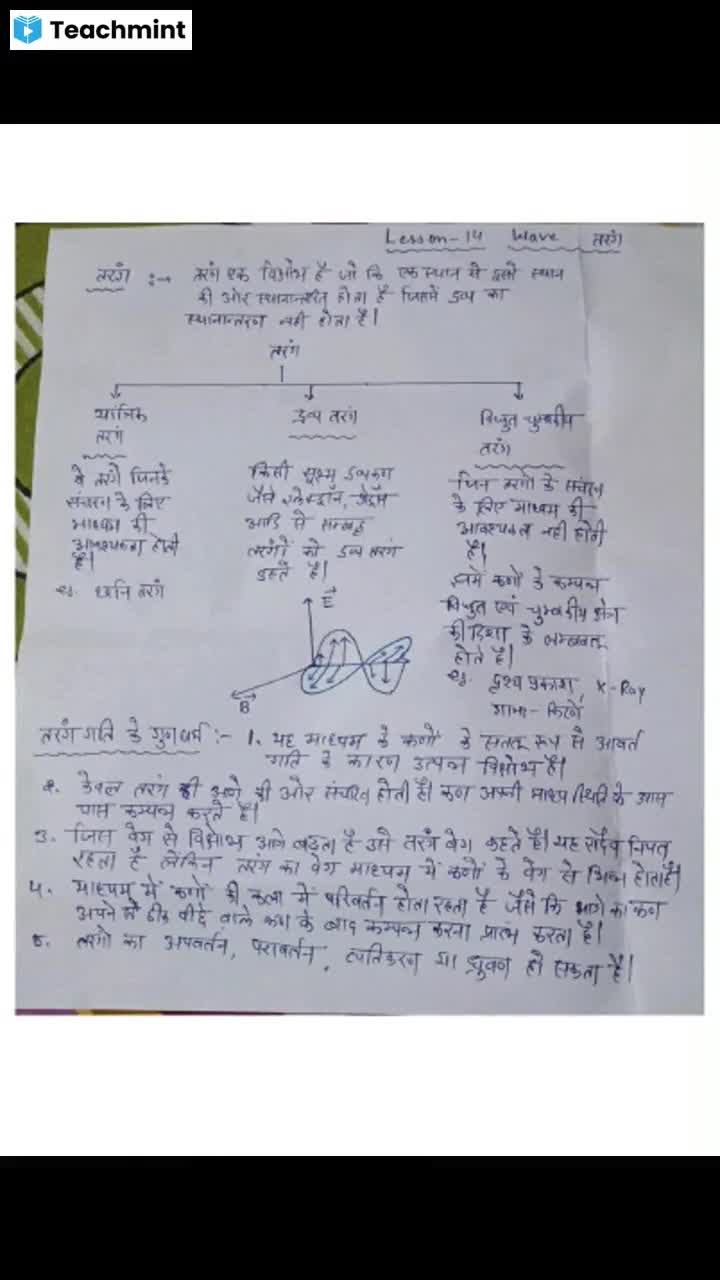 Teachmint
Lesson-14 Wave तरंग
तरंग :→ तरंग एक विक्षोभ है जो कि एक स्थान से दूसरे स्थान
की ओर स्थानान्तरित होता है जिसमें द्रव्य का
स्थानान्तरण नहीं होता है।
तरंग
यांत्रिक
तरंग
वे तरंगें जिनके
संचरण के लिए
माध्यम की
आवश्यकता होती
है।
eg. ध्वनि तरंग
द्रव्य तरंग
किसी सूक्ष्म द्रव्यकण
जैसे इलेक्ट्रॉन, प्रोटॉन
आदि से सम्बद्ध
तरंगों को द्रव्य तरंग
कहते है।
विधुत चुम्बकीय
तरंग
जिन तरंगों के संचरण
के लिए माध्यम की
आवश्यकता नही होती
है।
इनमें कणों के कम्पन्न
विधुत एवं चुम्बकीय क्षेत्र
की दिशा के लम्बवत्
होते है।
eg. दृश्य प्रकाश, X-Ray
गामा-किरणें
E
B
तरंग गति के गुणधर्म :- 1. यह माध्यम के कणों के सतत् रूप से आवर्त
गति के कारण उत्पन्न विक्षोभ है।
2. केवल तरंग ही आगे की ओर संचरित होती है। कण अपनी माध्य स्थिति के आस
पास कम्पन्न करते है।
3. जिस वेग से विक्षोभ आगे बढ़ता है उसे तरंग वेग कहते है। यह सदैव नियत
रहता है लेकिन तरंग का वेग माध्यम में कणों के वेग से भिन्न होता है।
4. माध्यम में कणों की कला में परिवर्तन होता रहता है जैसे कि आगे का कण
अपने से ठीक पीछे वाले कण के बाद कम्पन्न करना प्रारंभ करता है।
5. तरंगो का अपवर्तन, परावर्तन, व्यतिकरण या ध्रुवण हो सकता है।